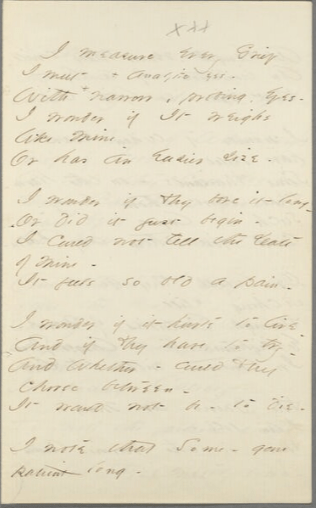 xxx
I measure every Grief
I meet + Analytic eyes -
With + narrow, probing, Eyes -
I wonder if It weighs
like Mine -
Or has an Easier size -
I wonder if They bore it long -
Or did it just begin -
I could not tell the Date
of Mine -
It feels so old a pain -
I wonder if it hurts to live -
And if They have to try -
And whether - could They
choose between -
It would not be - to die -
I note that Some - gone
patient long -